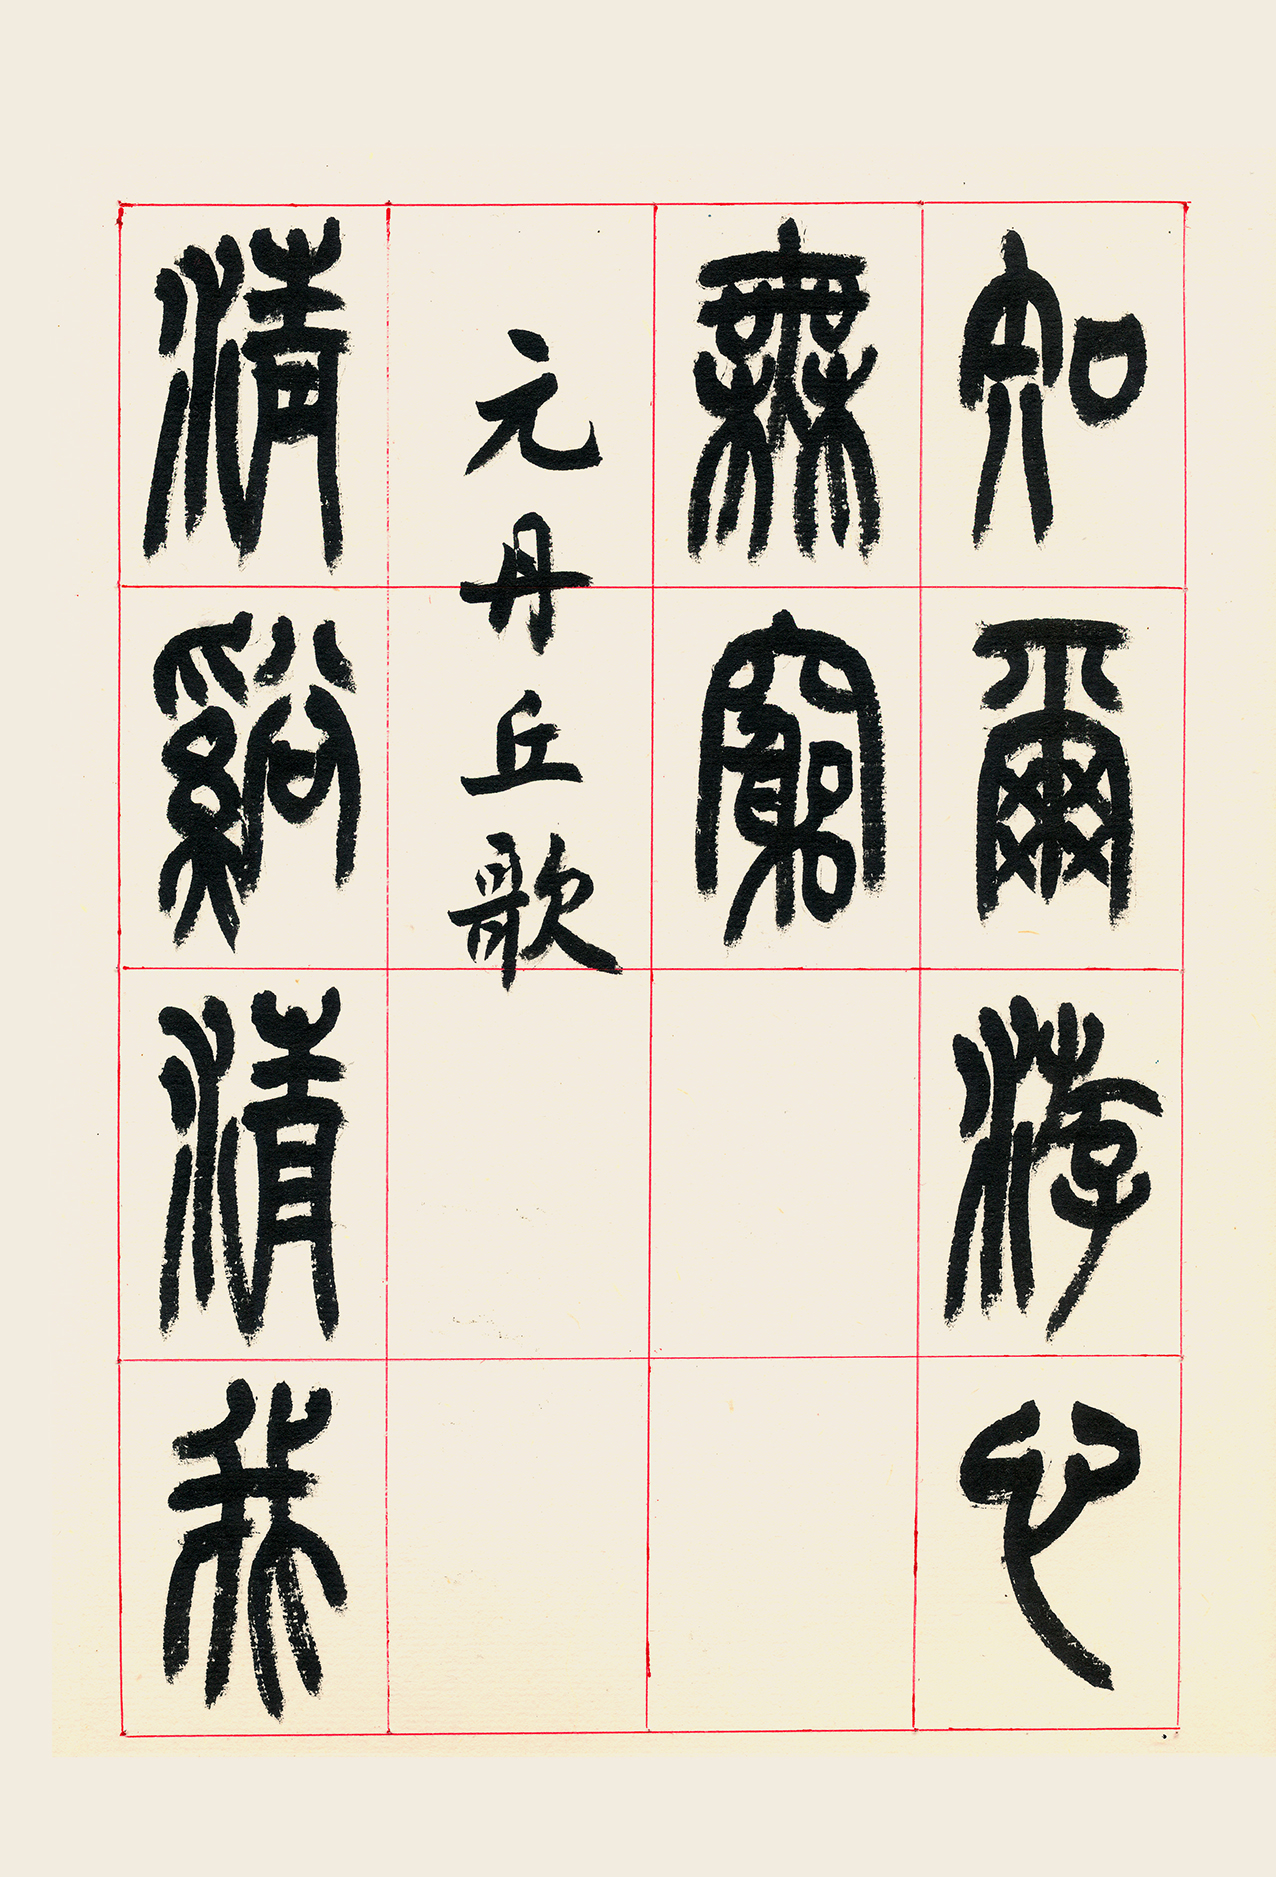 知爾游心
無窮
元丹丘歌
清谿清我